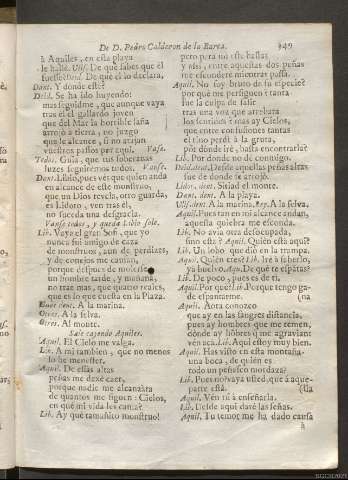 De D. Pedro Calderon de la Barca. 149
à Aquiles, en esta playa
le hallè. Ulis. De què sabes que èl
fuesse? Deid. De que èl lo declara,
Dant. Y donde està?
Deid. Se ha ido huyendo:
mas seguidme, que aunque vaya
tras èl el gallardo joven
que del Mar la horrible saña
arrojò à tierra, no juzgo
que le alcance, si no atajan
vuestros passos por aqui. Vase.
Todos. Guia, que tus soberanas
luzes seguirèmos todos. Vanse.
Dant. Libio, pues vès que quien anda
en alcance de este monstruo,
que un Dios revela, otro guarda,
es Lidoro, ven tras èl,
no suceda una desgracia.
Vanse todos, y queda Libio solo.
Lib. Vaya el gran Sofi, que yo
nunca fui amigo de caza
de monstruos, aun de perdizes,
y de conejos me cansa,
porque despues de molerse
un hombre tarde, y mañana,
no trae mas, que quatro reales,
que es lo que cuesta en la Plaza.
Unos dent. A la marina.
Otros. A la selva.
Otros. Al monte.
Sale cayendo Aquiles.
Aquil. El Cielo me valga.
Lib. A mi tambien, que no menos
lo he menester.
Aquil. De essas altas
peñas me dexè caer,
porque nadie me alcanzàra
de quantos me siguen: Cielos,
en què mi vida les cansa?
Lib. Ay què tamañito monstruo!
pero para mi este bastas
y assi, entre aquestas dos peñas
me esconderè mientras passa.
Aquil. No soy bruto de tu especie?
por què me persiguen? tanta
fue la culpa de salir
tras una voz que arrebata
los sentidos? mas ay Cielos,
que entre confusiones tantas
el tino perdì à la gruta,
por dònde irè, hasta encontrarla?
Lib. Por donde no dè conmigo.
Deid. dent. Desde aquellas peñas altas
fue de donde se arrojò.
Lidor. dent. Sitiad el monte.
Dant. dent. A la playa.
Ulis. dent. A la marina. Rey. A la selva.
Aquil. Pues tan en mi alcance andan,
aquella quiebra me esconda.
Lib. No avia otra desocupada,
sino esta? Aquil. Quièn està aqui?
Lib. Un lobo que diò en la trampa.
Aquil. Quièn eres? Lib. Irè à saberlo,
ya buelvo. Aqu. De què te espãtas?
Lib. De poco, pues es de ti.
Aquil. Por què? Lib. Porque tengo ga-
de espantarme. (na
Aquil. Aora conozco
que ay en las sangres distancia,
pues ay hombres que me temen,
donde ay hombres que me agravian:
vèn acà. Lib. Aqui estoy muy bien.
Aquil. Has visto en esta montaña
una boca, de quien es
todo un peñasco mordaza?
Lib. Pues no vaya usted, que à aque-
parte està. (lla
Aquil. Vèn tù à enseñarla.
Lib. Desde aqui darè las señas.
Aquil. Tu temor me ha dado causa